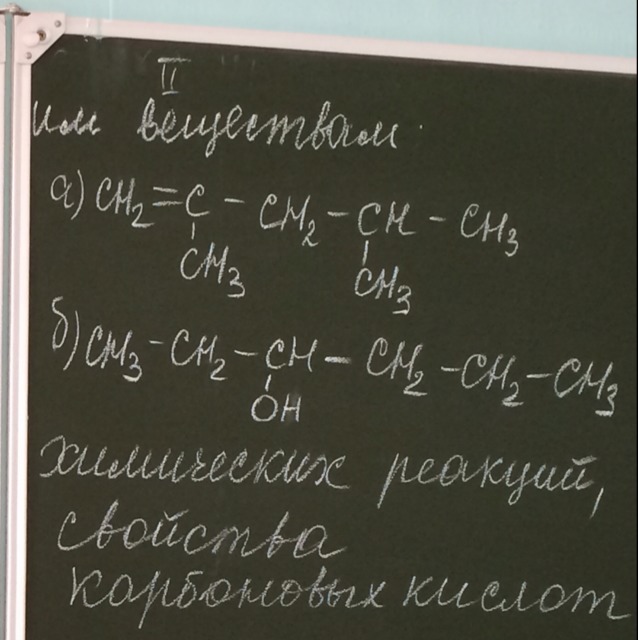 II
им веществам.
а) CH₂=C-CH₂-CH-CH₃
CH₃ CH₃
б) CH₃-CH₂-CH-CH₂-CH₂-CH₃
OH
химических реакций,
свойства
карбоновых кислот